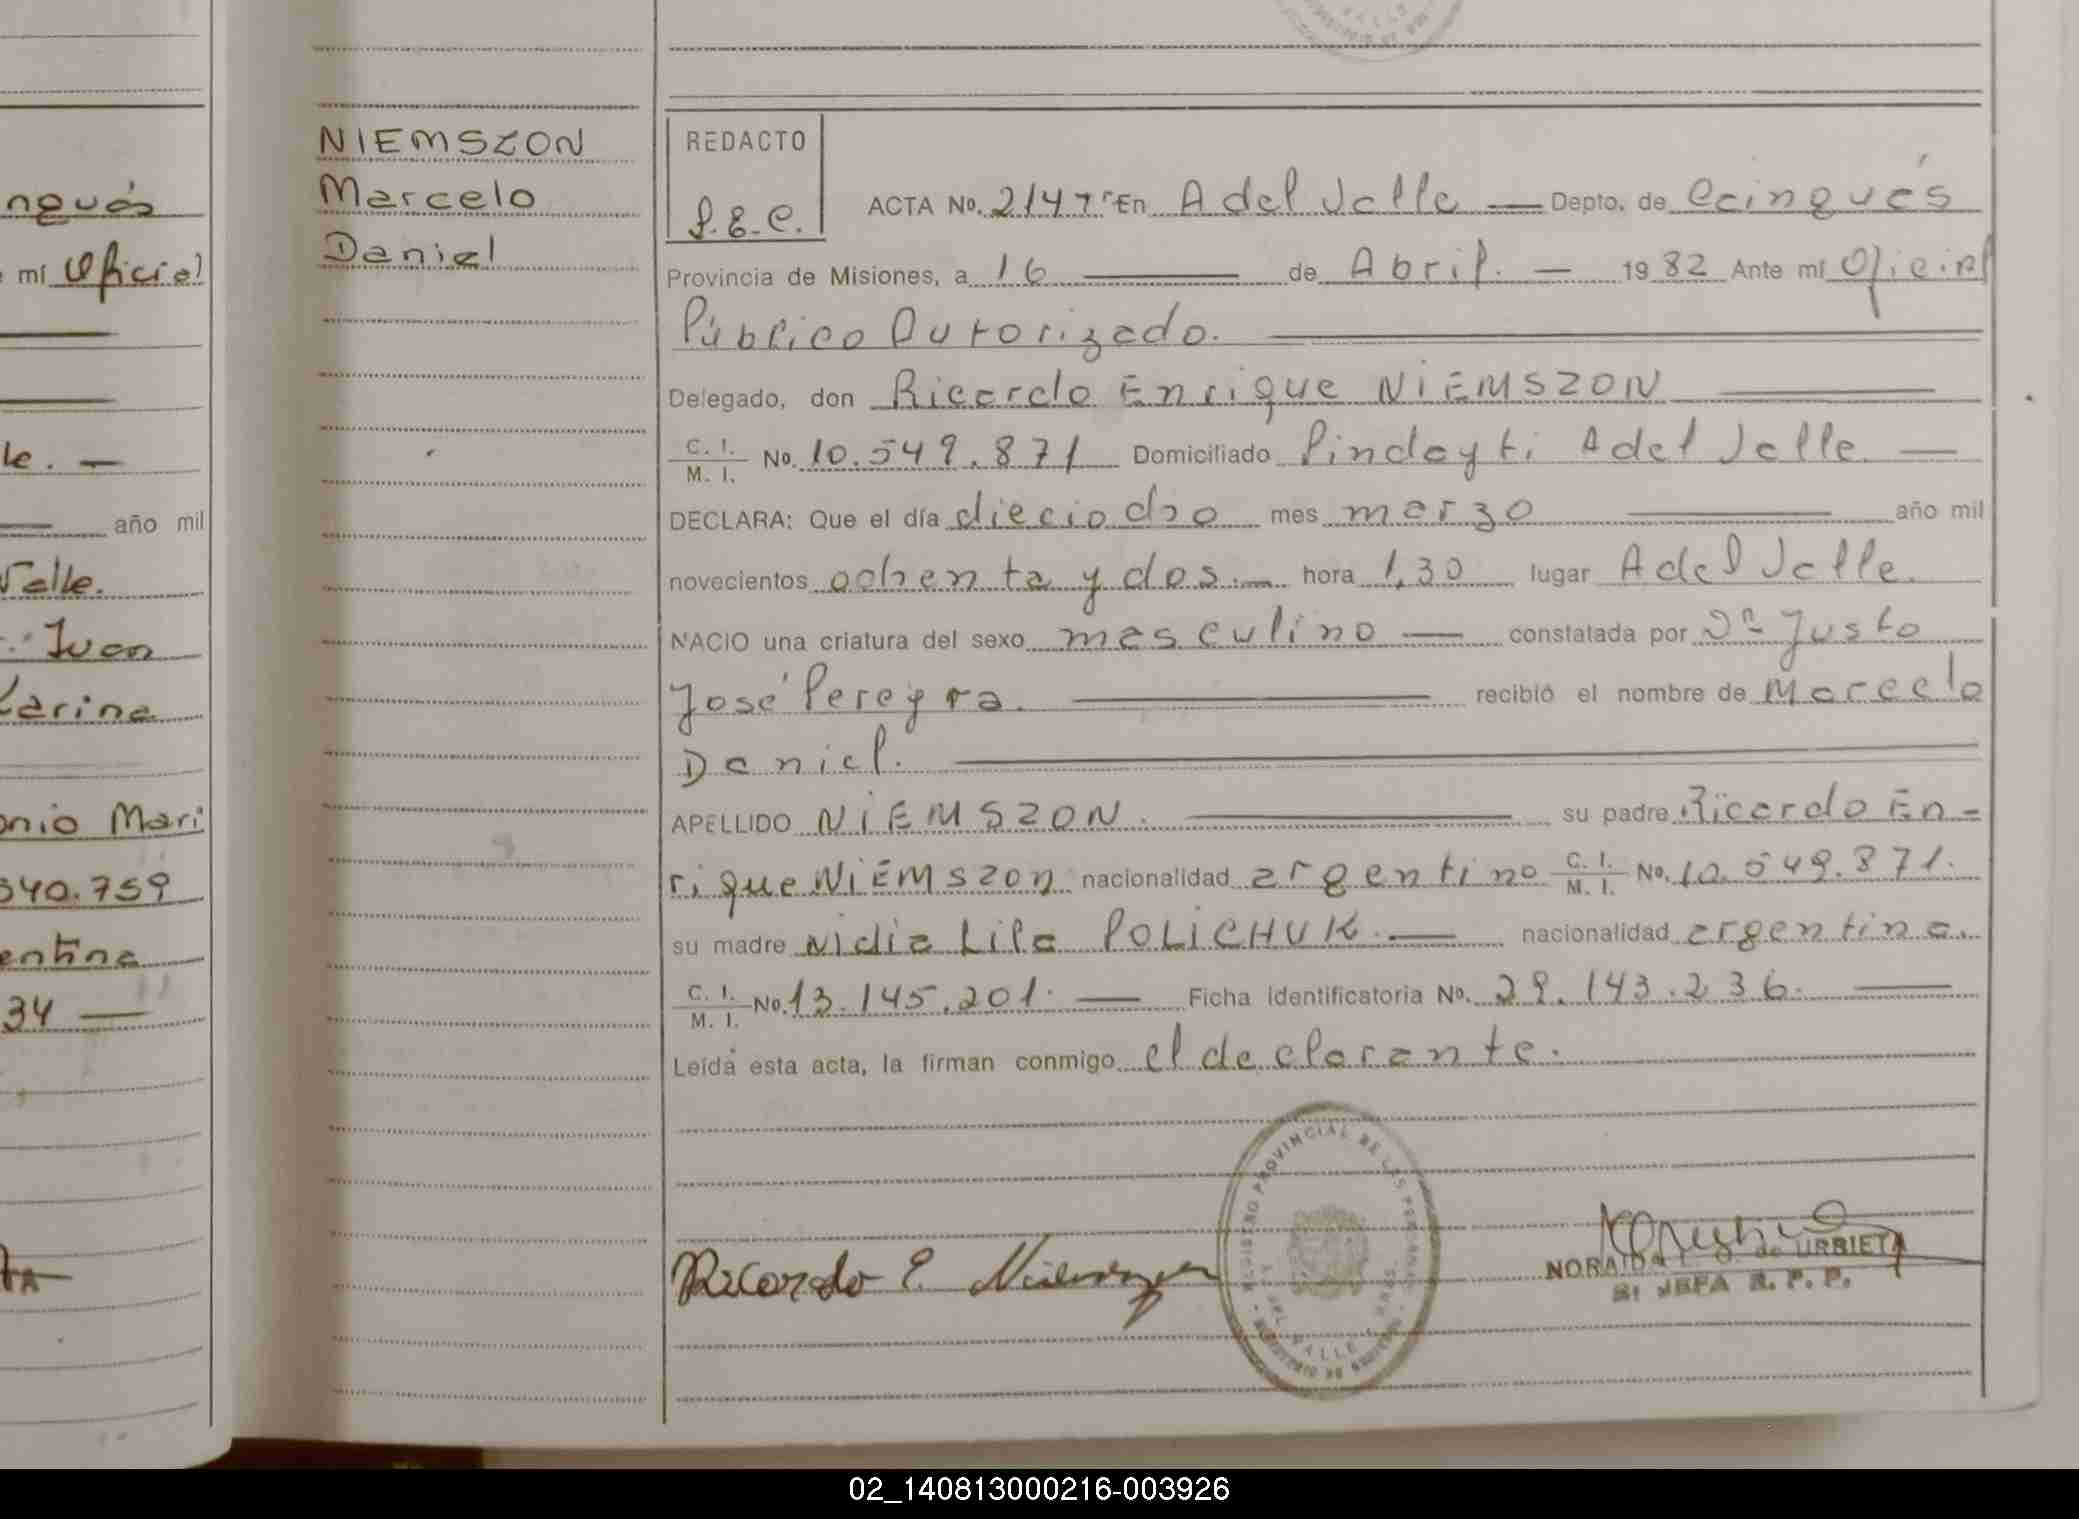 nguás
mí Oficial
le. —
año mil
Valle.
Juan
Karina
onio Mari
340.759
entina
34 —
NIEMSZON
Marcelo
Daniel
REDACTO
ACTA No. 2147 En A del Valle — Depto. de Cainguás
Provincia de Misiones, a 16 — de Abril. — 1982 Ante mí Oficial
Público Autorizado. —
Delegado, don Ricardo Enrique NIEMSZON —
C. I. / M. I. No. 10.549.871 Domiciliado Pindayti A del Valle —
DECLARA: Que el día dieciocho mes marzo — año mil
novecientos ochenta y dos. — hora 1,30 lugar A del Valle.
NACIO una criatura del sexo masculino — constatada por Dn Justo
José Pereyra. — recibió el nombre de Marcelo
Daniel. —
APELLIDO NIEMSZON. — su padre Ricardo En-
rique NIEMSZON nacionalidad argentino C. I. / M. I. No. 10.549.871.
su madre Nidia Lila POLICHUK. — nacionalidad argentina.
C. I. / M. I. No. 13.145.201. — Ficha identificatoria No. 29.143.236. —
Leída esta acta, la firman conmigo el declarante.
REGISTRO PROVINCIAL DE LAS PERSONAS
Ricardo E. Niemszon
NORAIDA de URRIETA
JEFA R. P. P.
02_140813000216-003926